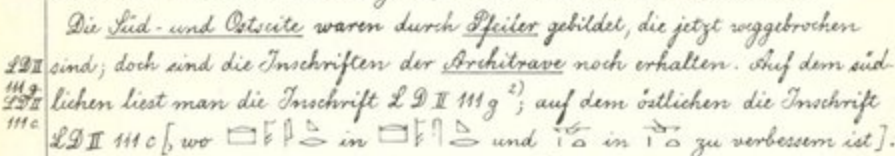 Die Süd- und Ostseite waren durch Pfeiler gebildet, die jetzt weggebrochen
LDII sind; doch sind die Inschriften der Architrave noch erhalten. Auf dem süd-
111 g.
LDII lichen liest man die Inschrift L D II 111 g ²⁾; auf dem östlichen die Inschrift
111 c. LD II 111 c [, wo in und in zu verbessern ist].